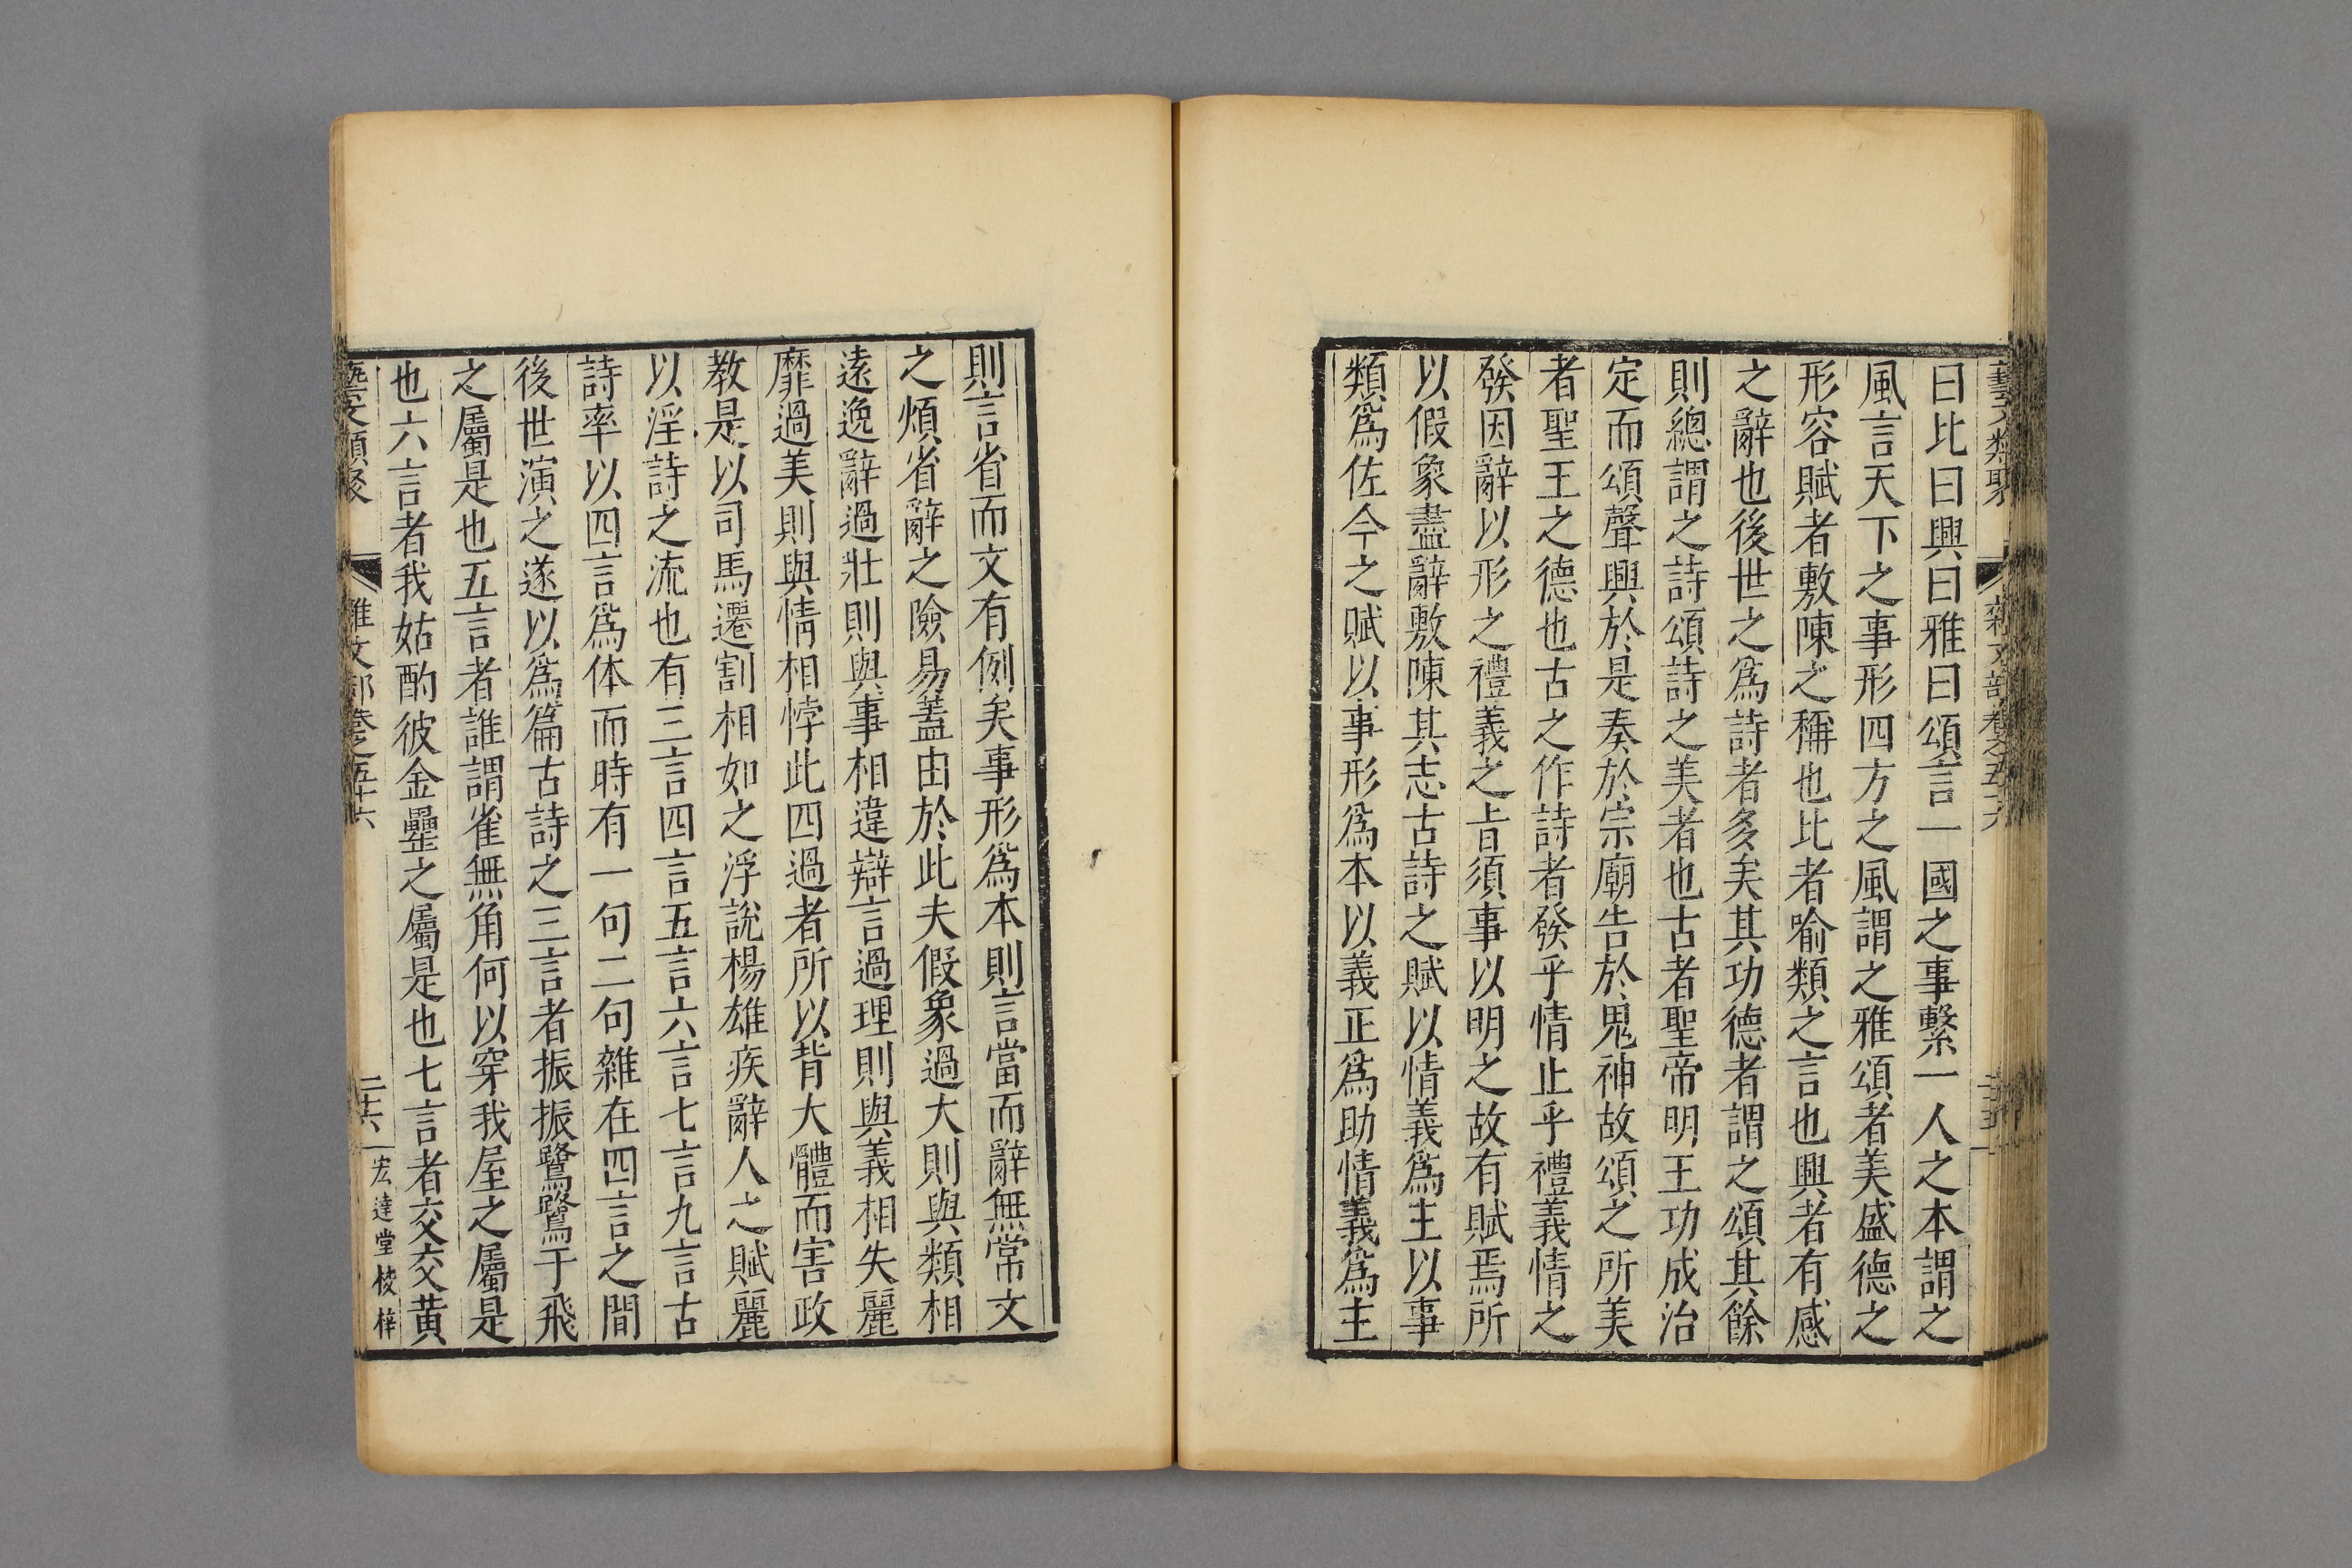 曰比曰興曰雅曰頌言一國之事繫一人之本謂之
風言天下之事形四方之風謂之雅頌者美盛德之
形容賦者敷陳之稱也比者喻類之言也興者有感
之辭也後世之為詩者多矣其功德者謂之頌其餘
則總謂之詩頌詩之美者也古者聖帝明王功成治
定而頌聲興於是奏於宗廟告於鬼神故頌之所美
者聖王之德也古之作詩者發乎情止乎禮義情之
發因辭以形之禮義之㫖須事以明之故有賦焉所
以假象盡辭敷陳其志古詩之賦以情義爲主以事
類爲佐今之賦以事形爲本以義正爲助情義爲主
則言省而文有例矣事形爲本則言當而辭無常文
之煩省辭之險易蓋由於此夫假象過大則與類相
遠逸辭過壯則與事相違辯言過理則與義相失麗
靡過美則與情相悖此四過者所以背大體而害政
教是以司馬遷割相如之浮說楊雄疾辭人之賦麗
以淫詩之流也有三言四言五言六言七言九言古
詩率以四言爲体而時有一句二句雜在四言之間
後世演之遂以爲篇古詩之三言者振振鷺鷺于飛
之屬是也五言者誰謂雀無角何以穿我屋之屬是
也六言者我姑酌彼金罍之屬是也七言者交交黃
藝文類聚 雜文部卷之五十六 二十六 宏達堂棱梓